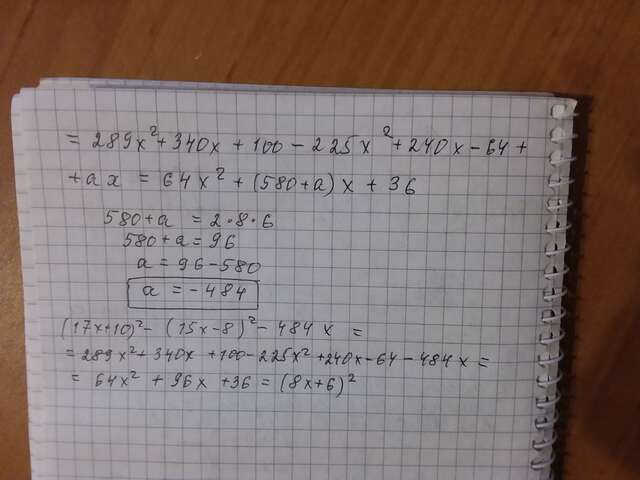 = 289x²+340x+100-225x²+240x-64+
+ax = 64x²+(580+a)x+36
580+a = 2·8·6
580+a=96
a=96-580
a=-484
(17x+10)²-(15x-8)²-484x =
=289x²+340x+100-225x²+240x-64-484x=
= 64x²+96x+36=(8x+6)²